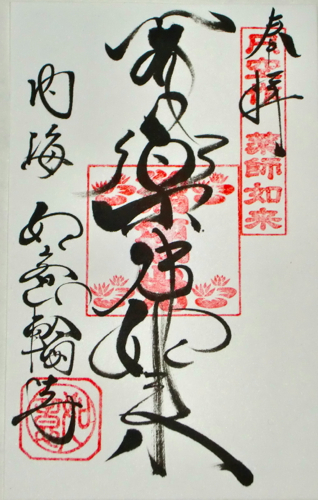 奉拝
薬師如来
薬師如来
内海 如意輪寺